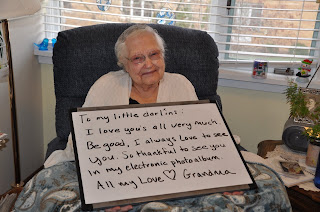 To my little darlins:
I love you's all very much
Be good, I always Love to see
You. So thankful to see you
In my electronic photoalbum
All my Love ♡ Grandma